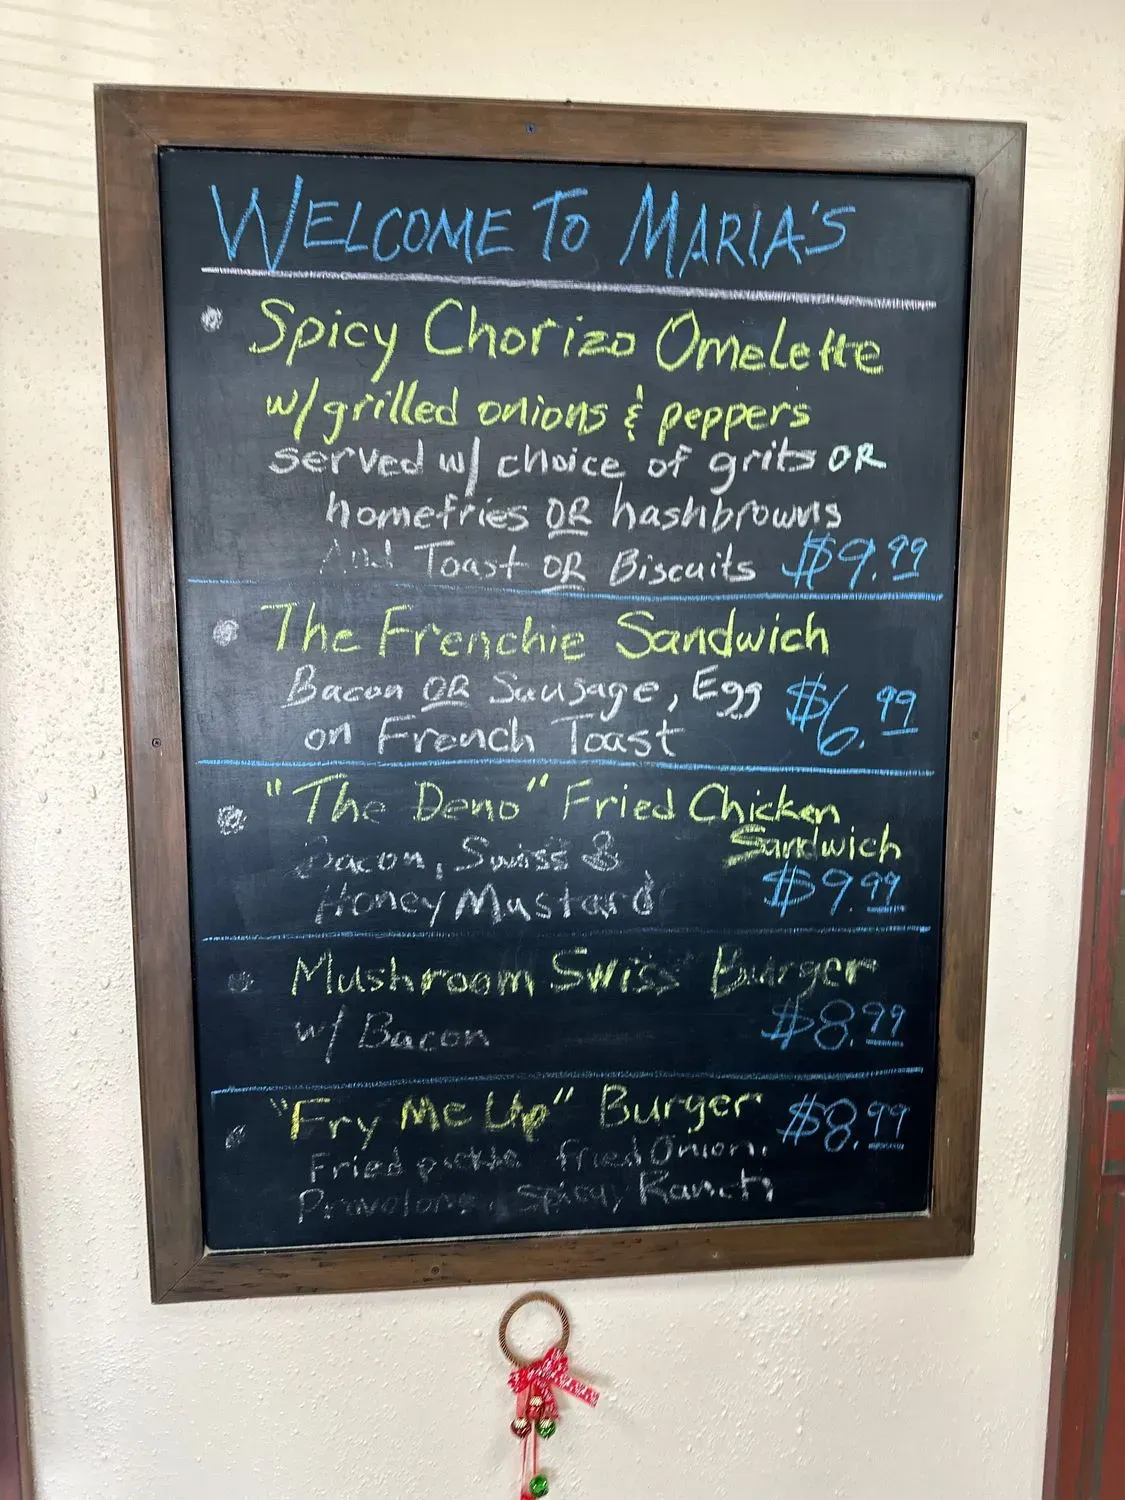 WELCOME TO MARIA'S
Spicy Chorizo Omelette
w/grilled onions & peppers
served w/ choice of grits OR
homefries OR hashbrowns
And Toast OR Biscuits $9.99
The Frenchie Sandwich
Bacon OR Sausage, Egg $6.99
on French Toast
"The Deno" Fried Chicken
Sandwich
Bacon, Swiss &
Honey Mustard $9.99
Mushroom Swiss Burger
w/ Bacon $8.99
"Fry Me Up" Burger $8.99
Fried pickle fried Onion,
Provolone, spicy Ranch